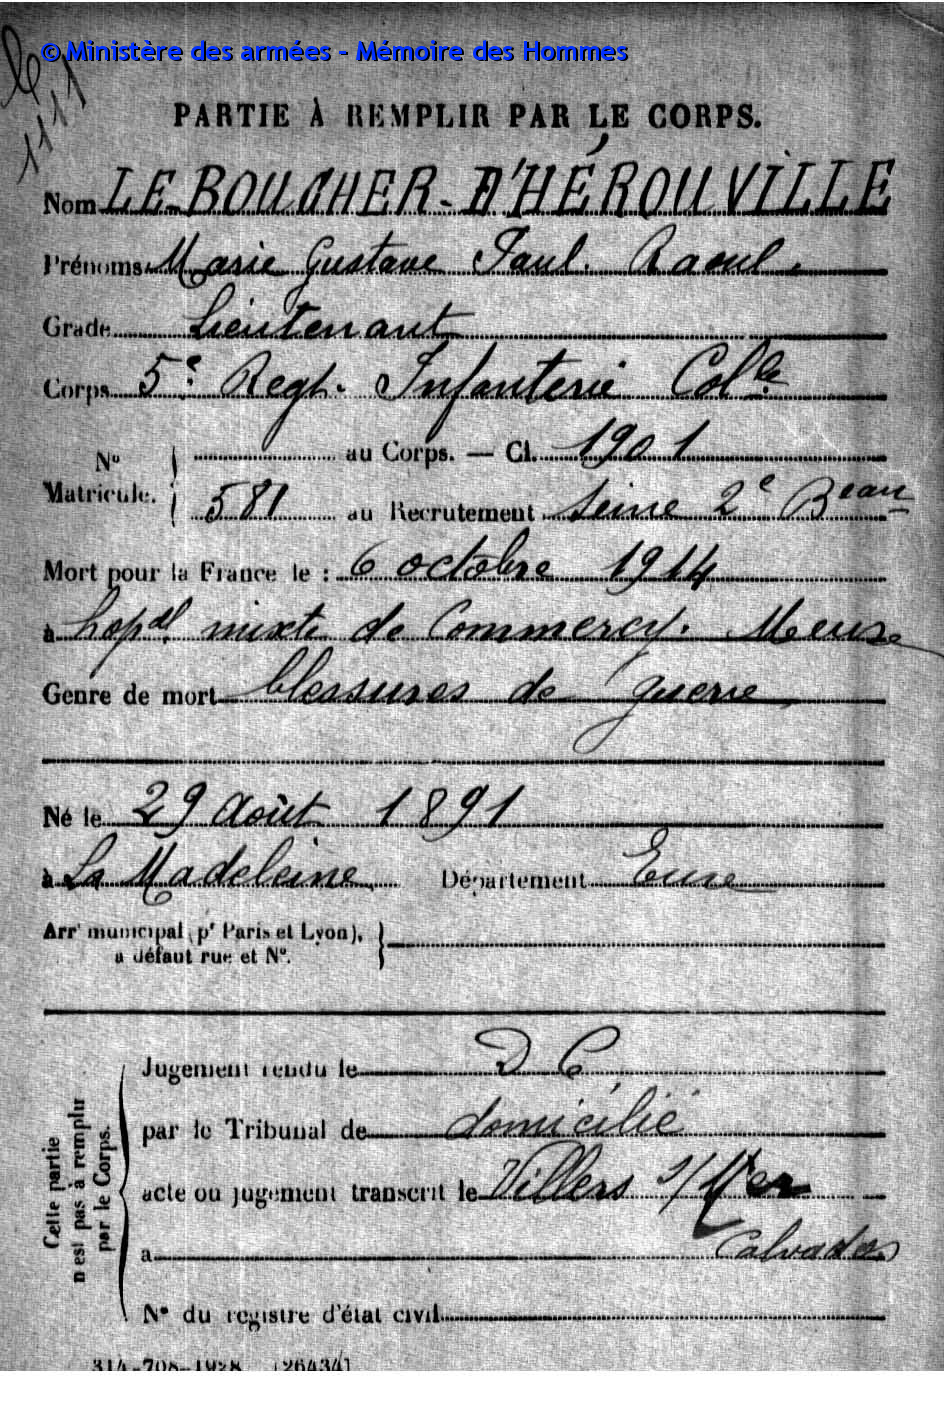 © Ministère des armées - Mémoire des Hommes
1111
PARTIE À REMPLIR PAR LE CORPS.
Nom LE BOUCHER-D'HÉROUVILLE
Prénoms Marie Gustave Paul. Raoul.
Grade Lieutenant
Corps 5e Regt. Infanterie Colle.
No Matricule. au Corps. — Cl. 1901
581 au Recrutement Seine 2e Beau
Mort pour la France le : 6 octobre 1914
à hopal mixte de Commercy. Meuse
Genre de mort blessures de guerre
Né le 29 Août 1891
à La Madeleine. Département Eure
Arrt municipal (pr Paris et Lyon),
à défaut rue et No.
Cette partie
n'est pas à remplir
par le Corps.
Jugement rendu le D C
par le Tribunal de domicilié
acte ou jugement transcrit le Villers s/Mer
à Calvados
No du registre d'état civil
314-708-1928. [26434]